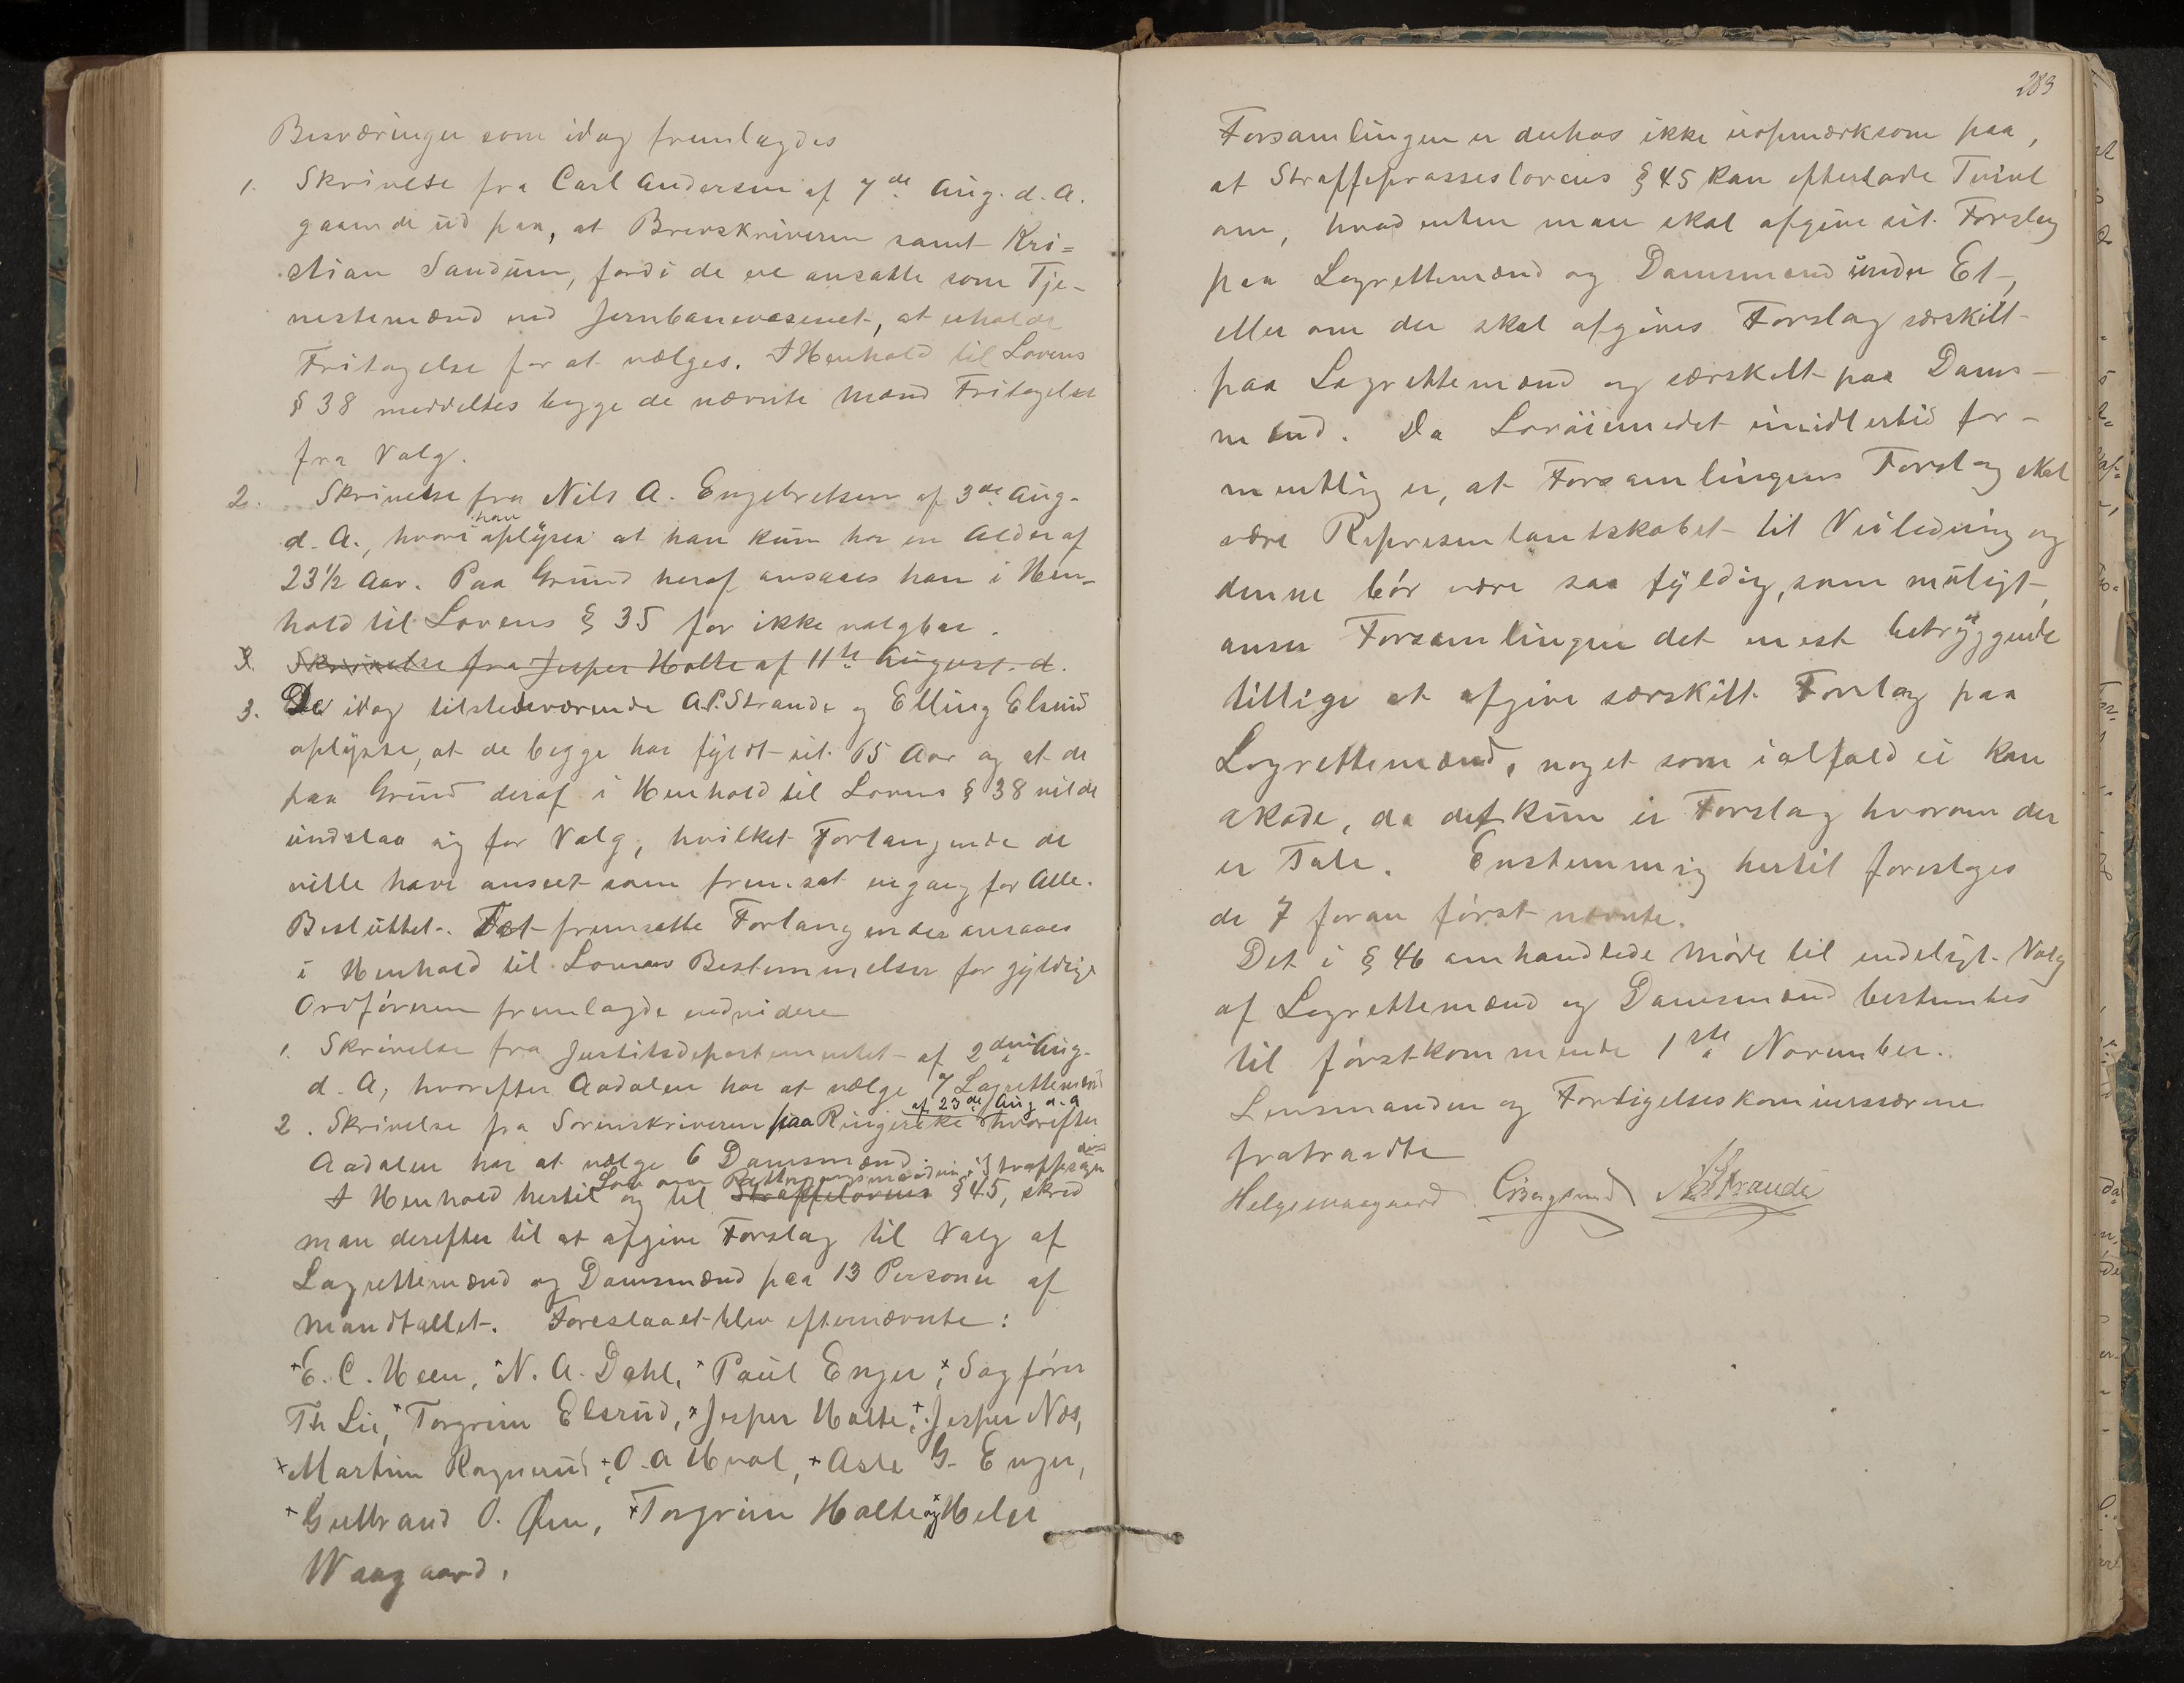 Besværinger som idag fremlagdes
1. Skrivelse fra Carl Andersen af 7de Aug. d. A.
gaaende ud paa, at Brevskriveren samt Kri=
stian Sandum, fordi de ere ansatte som Tje-
nestemænd ved Jernbanevæsenet, at erholde
Fritagelse for at vælges. I Henhold til Lovens
§ 38 meddeltes begge de nævnte Mænd Fritagelse
fra Valg.
2. Skrivelse fra Nils A. Engebretsen af 3de Aug.
d. A., hvori han oplyser at han kun har en Alder af
23½ Aar. Paa Grund heraf ansaaes han i Hen-
hold til Lovens § 35 for ikke valgbar.
3. Skrivelse fra Jesper Holte af 11te August. d.
3. De idag tilstedeværende A.P. Strande og Elling Elsrud
oplyste, at de begge har fyldt sit 65 Aar og at de
paa Grund deraf i Henhold til Lovens § 38 vilde
undslaa sig for Valg, hvilket Forlangende de
ville have anseet som fremsat engang for Alle.
Besluttet. Det fremsatte Forlangendes ansaaes
i Henhold til Lovens Bestemmelser for gyldige
Ordføreren fremlagde endvidere
1. Skrivelse fra Justitsdepartementet af 2den Aug.
d. A, hvorefter Aadalen har at vælge 7 Lagrettemænd
af 23de Aug d. a
2. Skrivelse fra Sorenskriveren paa Ringerike hvorefter
Aadalen har at vælge 6 Domsmænd.
Lov om Rettergangsmaaden i Straffesager
I Henhold hertil og til Straffelovens § 45, skred
man derefter til at afgive Forslag til Valg af
Lagrettemænd og Domsmænd paa 13 Personer af
Mandtallet. Foreslaaet blev efternævnte:
E. C. Heen, N. A. Dahl, Paul Enger, Sagfører
Th Lie, Torgrim Elsrud, Jesper Holte, Jesper Næs,
Martin Rognerud, O. A Hval, Asle G. Enger,
Gulbrand O. Øen, Torgrim Holte og Helge
Waagaard.
283
Forsamlingen er derhos ikke uopmærksom paa,
at Straffeprosseslovens § 45 kan efterlade Tvivl
om, hvad enten man skal afgive sit Forslag
paa Lagrettemænd og Domsmænd under Et,
eller om der skal afgives Forslag særskilt
paa Lagrettemænd og særskilt paa Doms-
mænd. Da Loviemedet imidlertid for-
mentlig er, at Forsamlingens Forslag skal
være Representantskabet til Veiledning og
denne bør være saa fyldig, som muligt,
anser Forsamlingen det mest betryggende
tillige at afgive særskilt Forslag paa
Lagrettemænd, noget som ialfald ei kan
skade, da det kun er Forslag hvorom der
er Tale. Enstemmig hertil foreslages
de 7 foran først nævnte.
Det i § 46 omhandlede Møde til endeligt Valg
af Lagrettemænd og Domsmænd bestemtes
til førstkommende 1ste November.
Lensmanden og Forligelseskommissærerne
fratraadte
Helge Waagaard C. Bergsund A. P. Strande